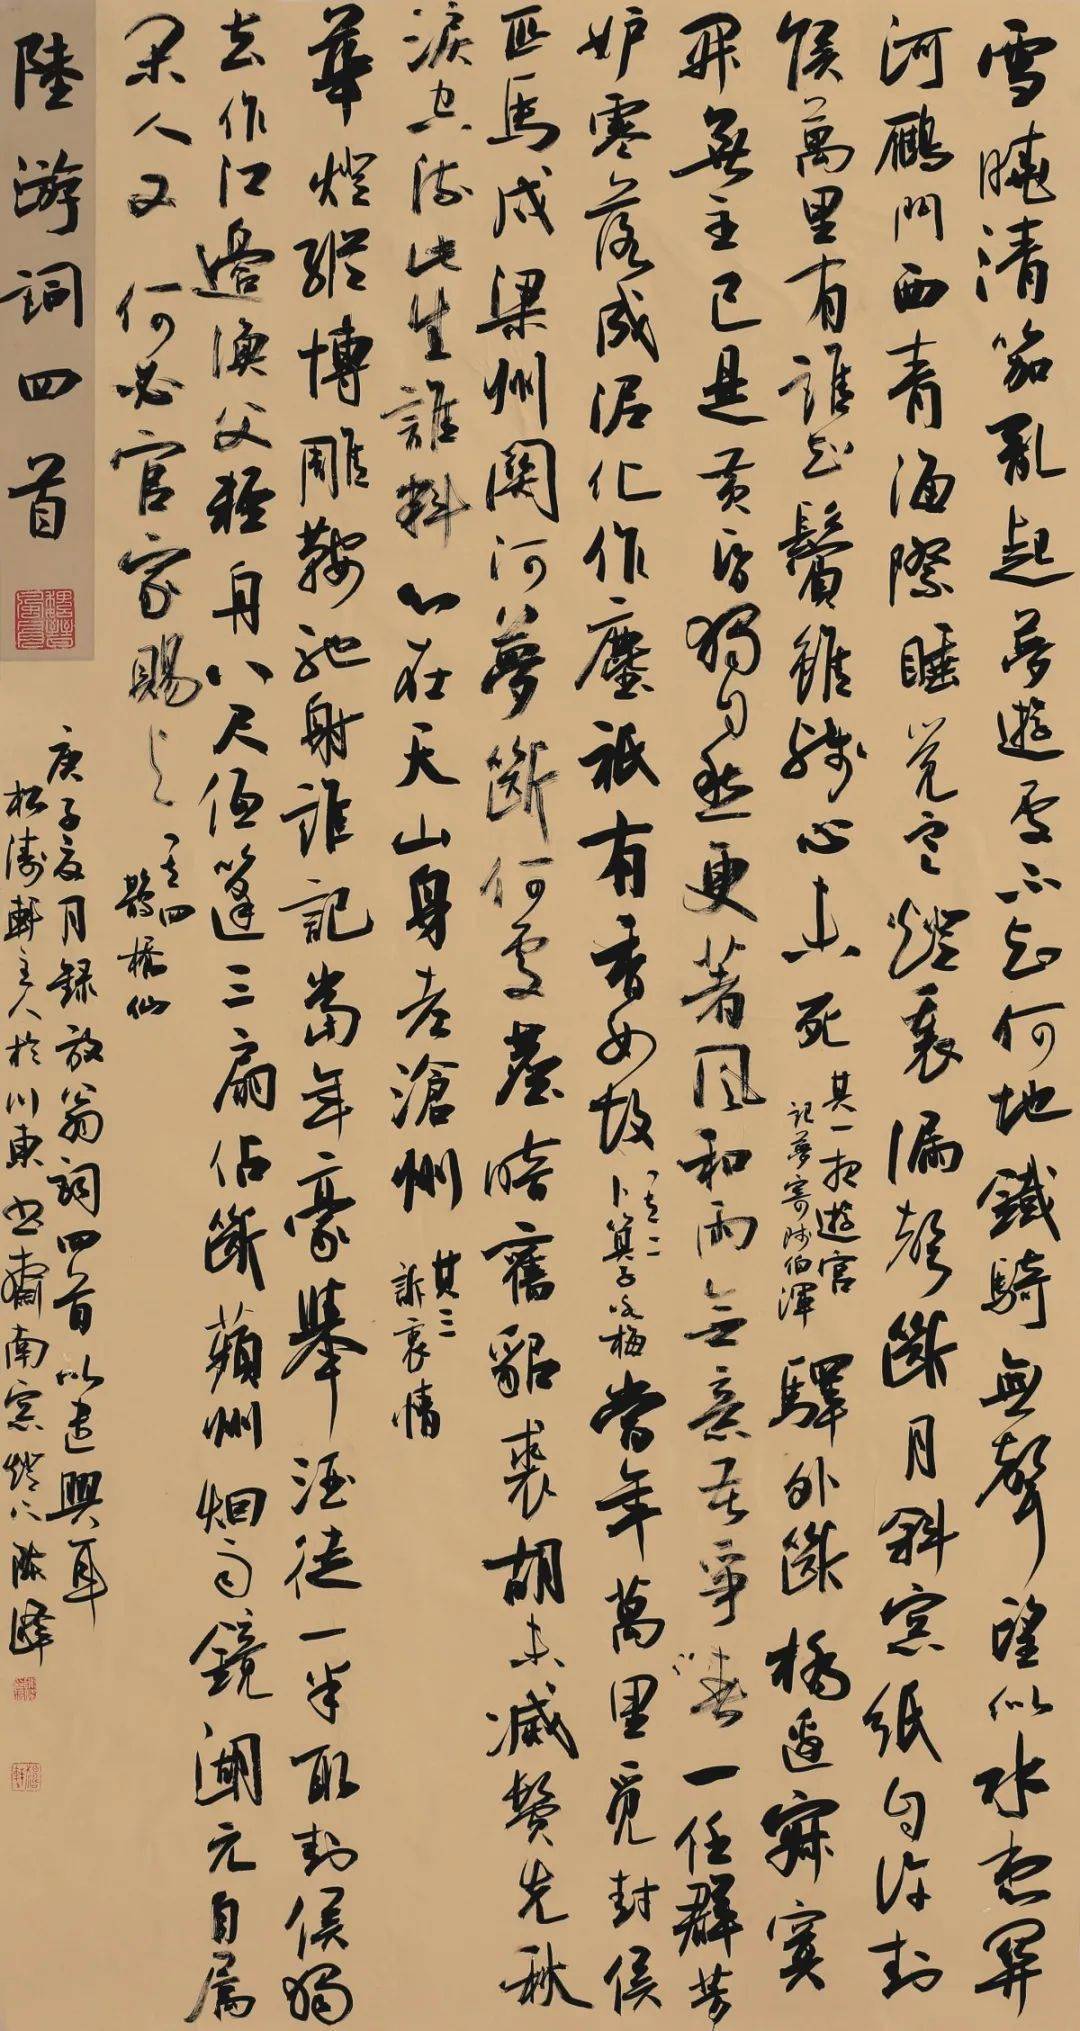 雪曉清笳亂起夢遊處不知何地鐵騎無聲望似水想關
河雁門西青海際睡覺寒燈裏漏聲斷月斜窓紙自許封
侯萬里有誰知鬢雖殘心未死
其一夜遊宮
記夢寄師伯渾
驛外斷橋邊寂寞
開無主已是黃昏獨自愁更著風和雨無意苦爭春一任群芳
妒零落成泥化作塵祇有香如故
其二
卜算子咏梅
當年萬里覓封侯
匹馬戍梁州關河夢斷何處塵暗舊貂裘胡未滅鬢先秋
淚空流此生誰料心在天山身老滄洲
其三
訴衷情
華燈縱博雕鞍馳射誰記當年豪舉酒徒一半取封侯獨
去作江邊漁父輕舟八尺低篷三扇佔斷蘋洲烟雨鏡湖元自屬
閑人又何必官家賜與
其四
鵲橋仙
庚子夏月錄放翁詞四首以遣興耳
松濤軒主人於川東書齋南窓燈下陳峰
陸游詞四首